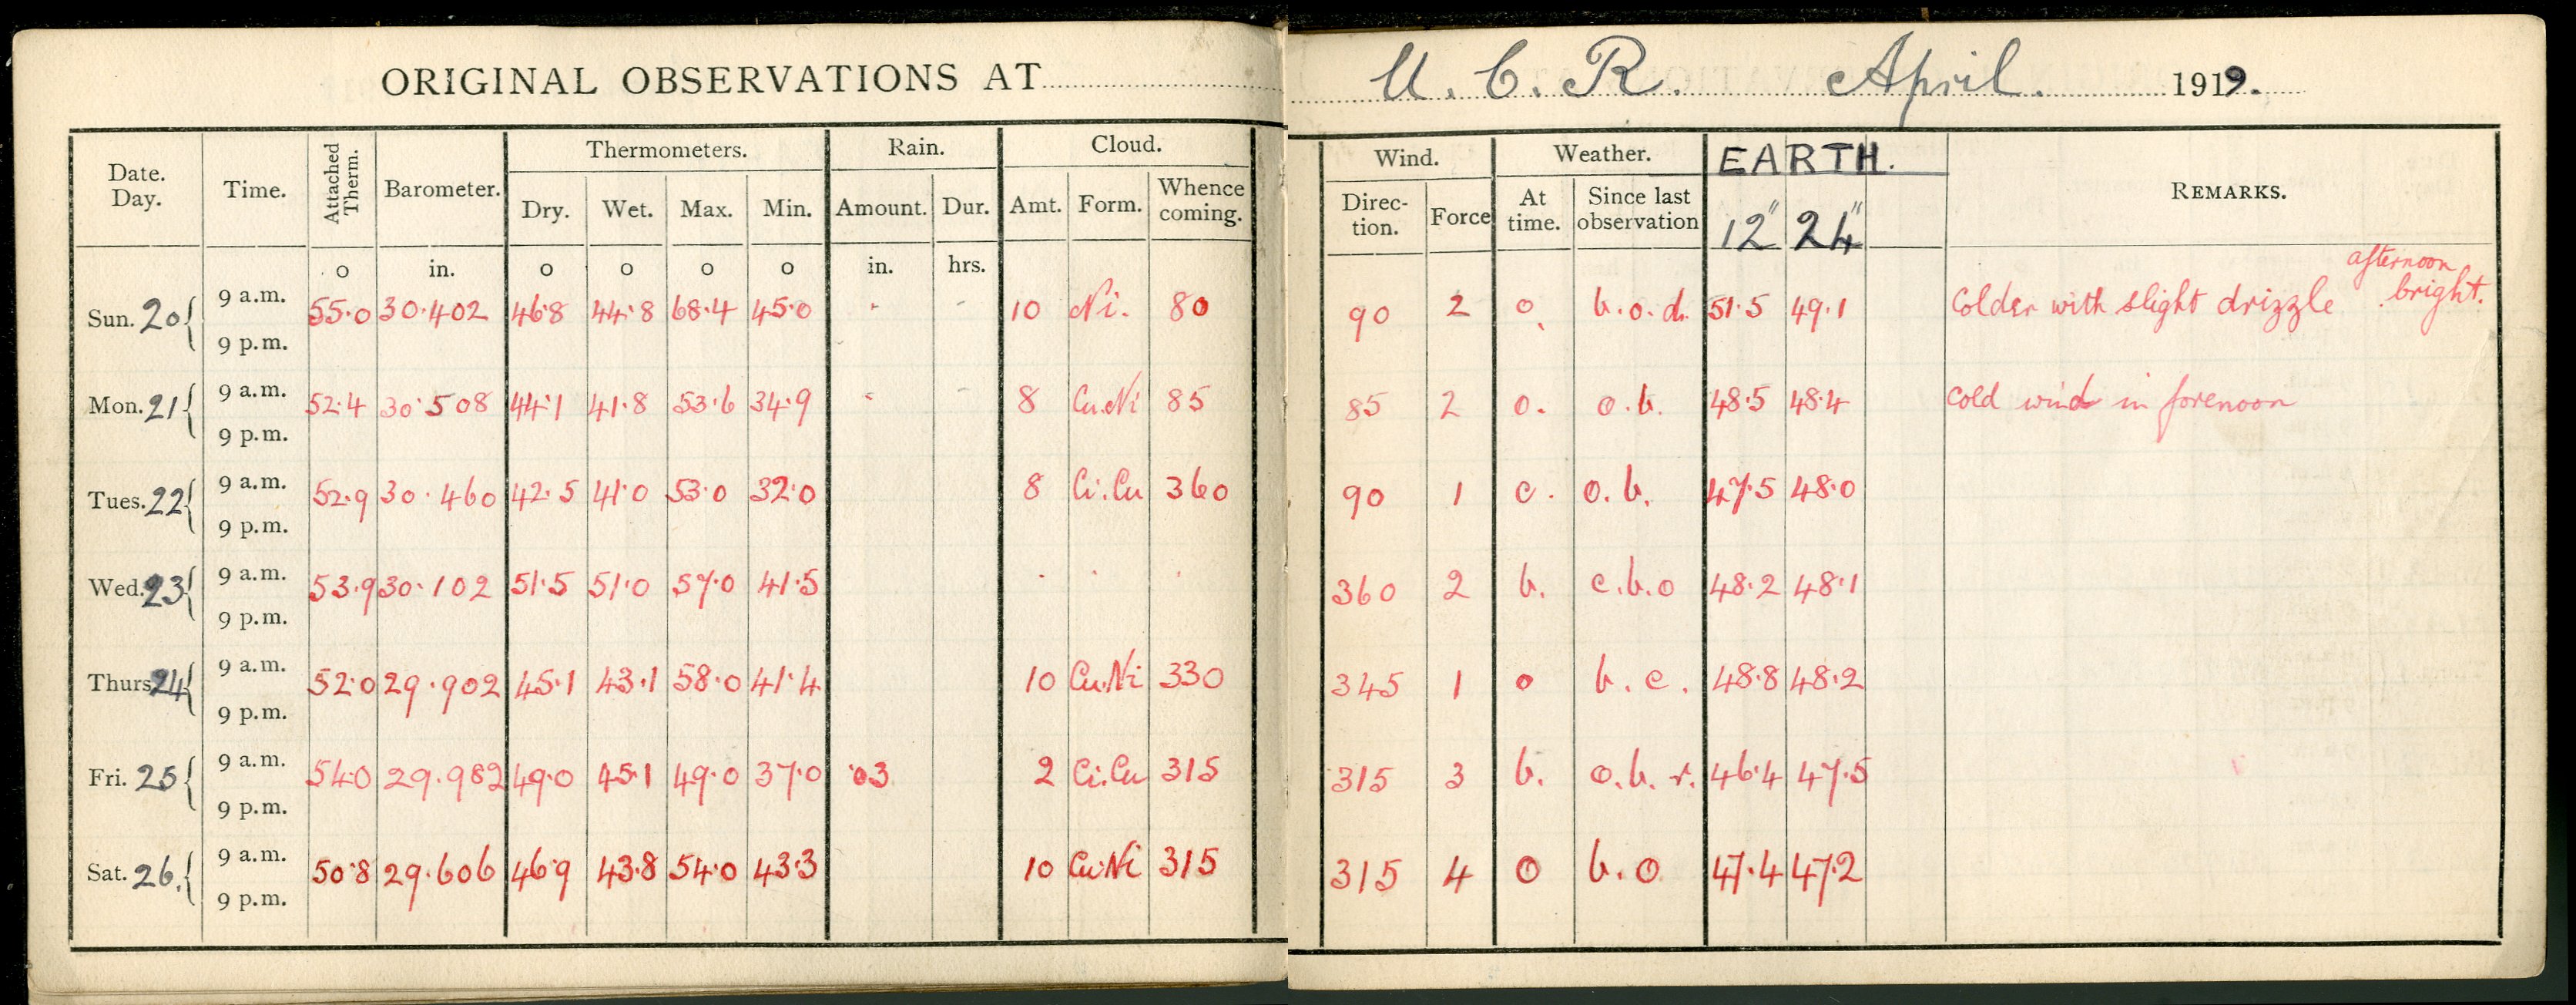 ORIGINAL OBSERVATIONS AT U. C. R. April. 1919.
Date. Day. Time. Attached Therm. Barometer. Thermometers. Rain. Cloud. Wind. Weather. EARTH. REMARKS.
Dry. Wet. Max. Min. Amount. Dur. Amt. Form. Whence coming. Direc- tion. Force At time. Since last observation 12" 24"
o in. o o o o in. hrs.
afternoon
Sun. 20 9 a.m. 55.0 30.402 46.8 44.8 68.4 45.0 - - 10 Ni. 80 90 2 o. b.o.d. 51.5 49.1 Colder with slight drizzle . bright.
9 p.m.
Mon. 21 9 a.m. 52.4 30.508 44.1 41.8 53.6 34.9 - - 8 Cu.Ni 85 85 2 o. o.b. 48.5 48.4 Cold wind in forenoon
9 p.m.
Tues. 22 9 a.m. 52.9 30.460 42.5 41.0 53.0 32.0 8 Ci.Cu 360 90 1 c. o.b. 47.5 48.0
9 p.m.
Wed. 23 9 a.m. 53.9 30.102 51.5 51.0 57.0 41.5 . . . 360 2 b. c.b.o 48.2 48.1
9 p.m.
Thurs 24 9 a.m. 52.0 29.902 45.1 43.1 58.0 41.4 10 Cu.Ni 330 345 1 o b.c. 48.8 48.2
9 p.m.
Fri. 25 9 a.m. 54.0 29.982 49.0 45.1 49.0 37.0 .03 2 Ci.Cu 315 315 3 b. o.b.r. 46.4 47.5
9 p.m.
Sat. 26. 9 a.m. 50.8 29.606 46.9 43.8 54.0 43.3 10 Cu.Ni 315 315 4 o b.o 47.4 47.2
9 p.m.